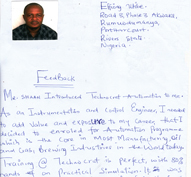 Ebiny
Road 8 Phase 8 Aluaru,
Rumuodomaya,
Portharcourt.
Rivers State.
Nigeria
Feedback
Mr. Introduced Technocrat Automation to me.
As an Instrumentation and Control Engineer, I
to add Value and exposure to my career, that I
decided to enroled for Automation Programme
which is the Core in Most Manufacturing, Oil
and Gas, Forming Industries in the World today.
Training @ Technocrat is perfect, with
hands on Practical Simulation. It was